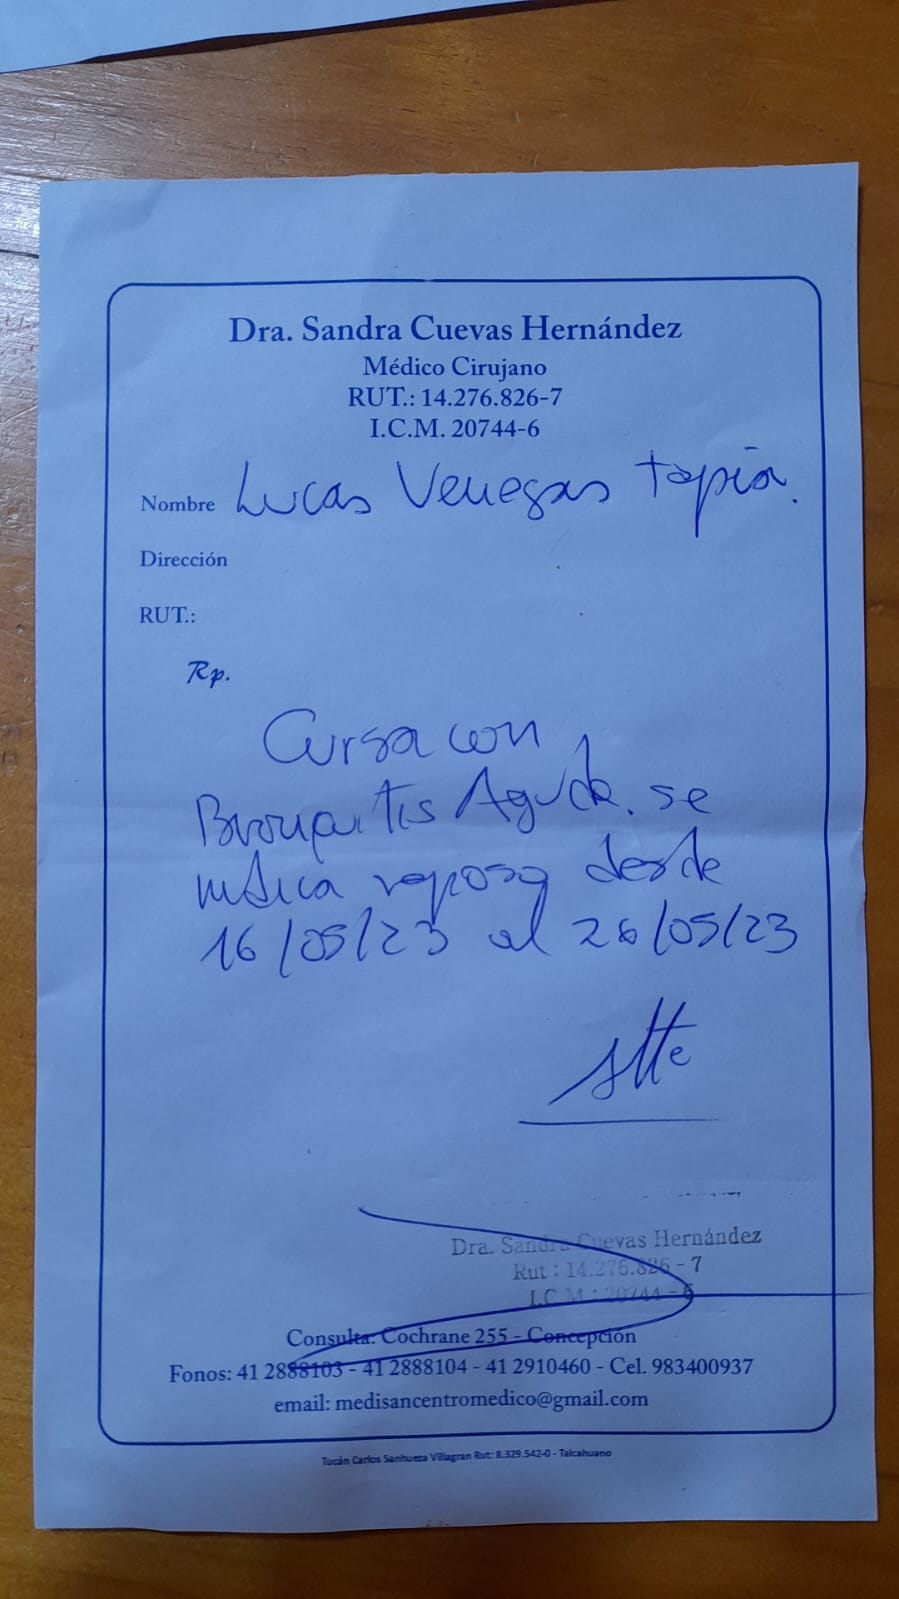 Dra. Sandra Cuevas Hernández
Médico Cirujano
RUT.: 14.276.826-7
I.C.M. 20744-6
Nombre Lucas Venegas Tapia.
Dirección
RUT.:
Rp.
Cursa con
Bronquitis Aguda. se
indica reposo desde
16/05/23 al 26/05/23
Atte
Dra. Sandra Cuevas Hernández
Rut : 14.276.826 - 7
I.C.M. : 20744 - 6
Consulta: Cochrane 255 - Concepción
Fonos: 41 2888103 - 41 2888104 - 41 2910460 - Cel. 983400937
email: medisancentromedico@gmail.com
Tucán Carlos Sanhueza Villagran Rut: 8.329.542-0 - Talcahuano